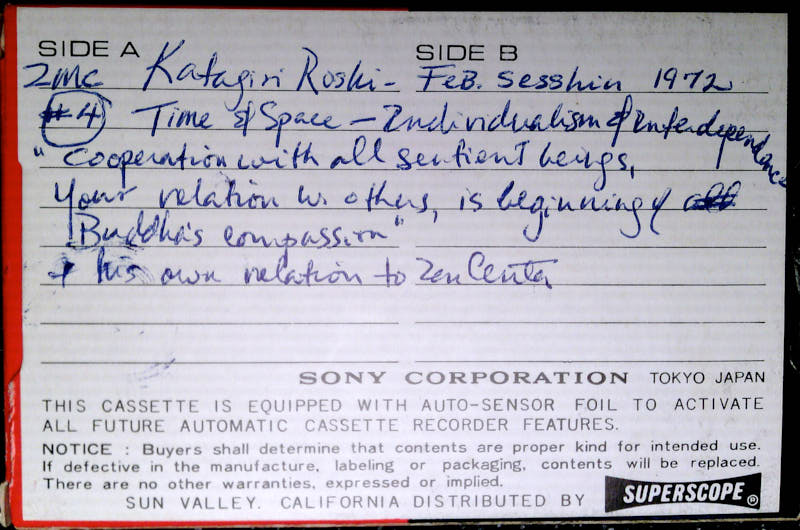 SIDE A SIDE B
ZMC Katagiri Roshi - Feb. Sesshin 1972
#4 Time & Space - Individualism & Interdependence
"Cooperation with all sentient beings,
your relation w. others, is beginning of
Buddha's compassion"
+ his own relation to Zen Center
SONY CORPORATION TOKYO JAPAN
THIS CASSETTE IS EQUIPPED WITH AUTO-SENSOR FOIL TO ACTIVATE
ALL FUTURE AUTOMATIC CASSETTE RECORDER FEATURES.
NOTICE : Buyers shall determine that contents are proper kind for intended use.
If defective in the manufacture, labeling or packaging, contents will be replaced.
There are no other warranties, expressed or implied.
SUN VALLEY. CALIFORNIA DISTRIBUTED BY SUPERSCOPE®